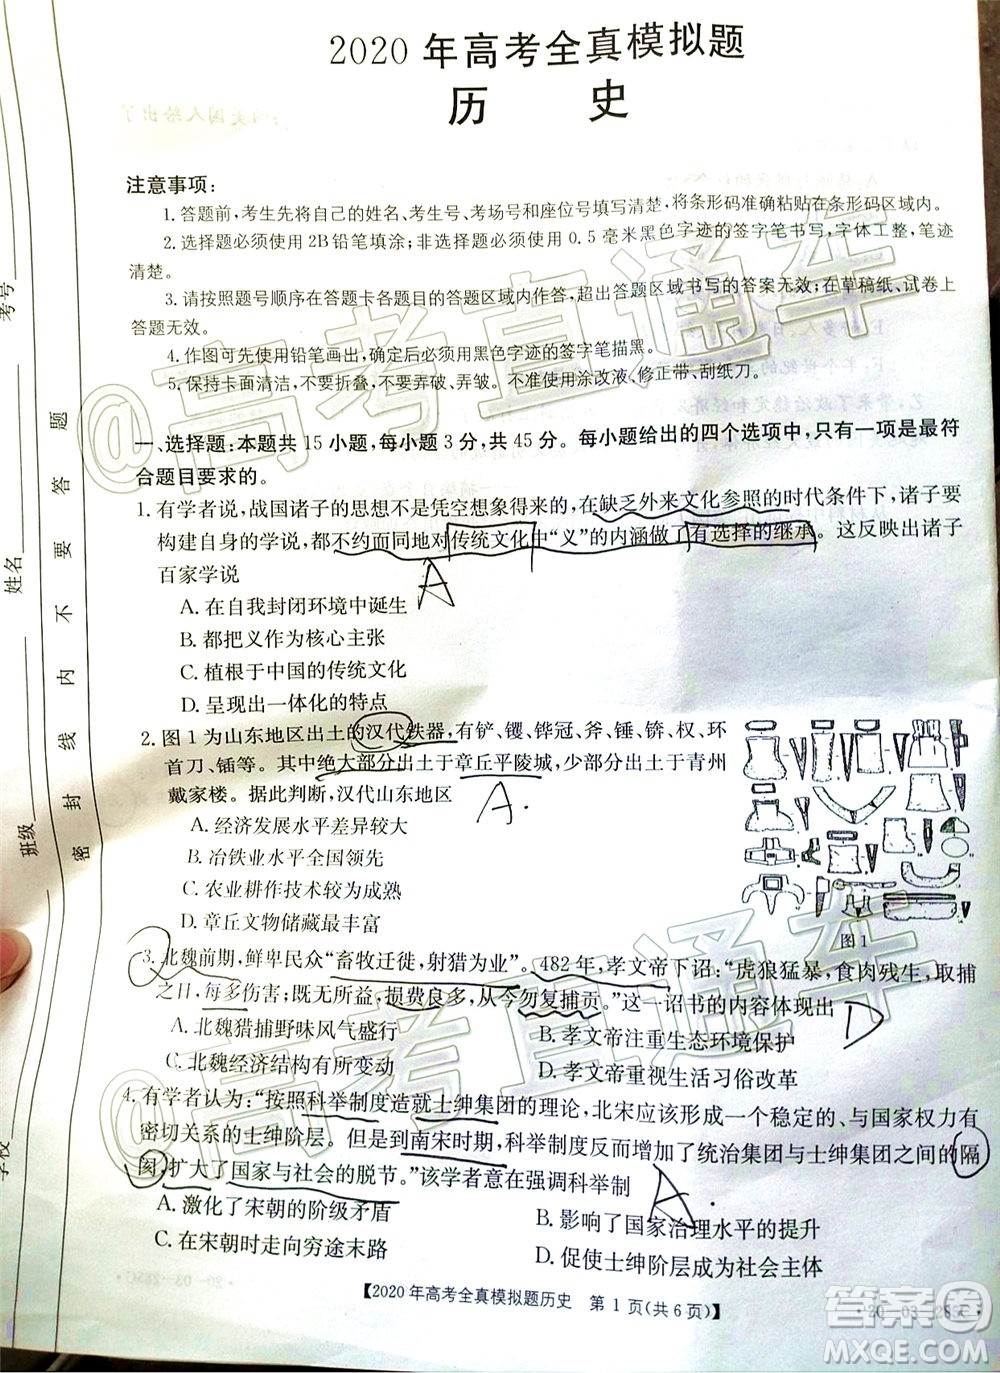 2020 年高考全真模拟题
历 史
注意事项：
1. 答题前，考生先将自己的姓名、考生号、考场号和座位号填写清楚，将条形码准确粘贴在条形码区域内。
2. 选择题必须使用 2B 铅笔填涂；非选择题必须使用 0.5 毫米黑色字迹的签字笔书写，字体工整，笔迹
清楚。
3. 请按照题号顺序在答题卡各题目的答题区域内作答，超出答题区域书写的答案无效；在草稿纸、试卷上
答题无效。
4. 作图可先使用铅笔画出，确定后必须用黑色字迹的签字笔描黑。
5. 保持卡面清洁，不要折叠，不要弄破、弄皱。不准使用涂改液、修正带、刮纸刀。
一、选择题：本题共 15 小题，每小题 3 分，共 45 分。每小题给出的四个选项中，只有一项是最符
合题目要求的。
1. 有学者说，战国诸子的思想不是凭空想象得来的，在缺乏外来文化参照的时代条件下，诸子要
构建自身的学说，都不约而同地对传统文化中“义”的内涵做了有选择的继承。这反映出诸子
百家学说
A
A. 在自我封闭环境中诞生
B. 都把义作为核心主张
C. 植根于中国的传统文化
D. 呈现出一体化的特点
2. 图 1 为山东地区出土的汉代铁器，有铲、镢、铧冠、斧、锤、锛、权、环
首刀、锸等。其中绝大部分出土于章丘平陵城，少部分出土于青州
戴家楼。据此判断，汉代山东地区
A.
A. 经济发展水平差异较大
B. 冶铁业水平全国领先
C. 农业耕作技术较为成熟
D. 章丘文物储藏最丰富
图 1
3. 北魏前期，鲜卑民众“畜牧迁徙，射猎为业”。482 年，孝文帝下诏：“虎狼猛暴，食肉残生，取捕
之日，每多伤害；既无所益，损费良多，从今勿复捕贡。”这一诏书的内容体现出
D
A. 北魏猎捕野味风气盛行
B. 孝文帝注重生态环境保护
C. 北魏经济结构有所变动
D. 孝文帝重视生活习俗改革
4. 有学者认为：“按照科举制度造就士绅集团的理论，北宋应该形成一个稳定的、与国家权力有
密切关系的士绅阶层。但是到南宋时期，科举制度反而增加了统治集团与士绅集团之间的隔
阂，扩大了国家与社会的脱节。”该学者意在说明科举制
A
A. 激化了宋朝的阶级矛盾
B. 影响了国家治理水平的提升
C. 在宋朝时走向穷途末路
D. 促使士绅阶层成为社会主体
【2020 年高考全真模拟题历史 第 1 页(共 6 页)】
·20-03-285C·
考号
姓名
班级
学校
密 封 线 内 不 要 答 题
@高考直通车
@高考直通车
答案圈
MXQE.COM